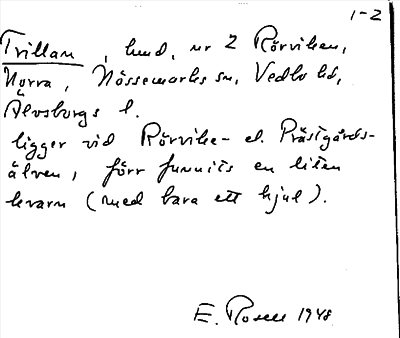 1-2
Trillan, hmd, nr 2 Rörviken,
Norra, Nössemarks sn, Vedbo hd,
Älvsborgs l.
ligger vid Rörvike- el. Prästgårds-
älven, förr funnits en liten
kvarn (med bara ett hjul).
E. Rosell 1948